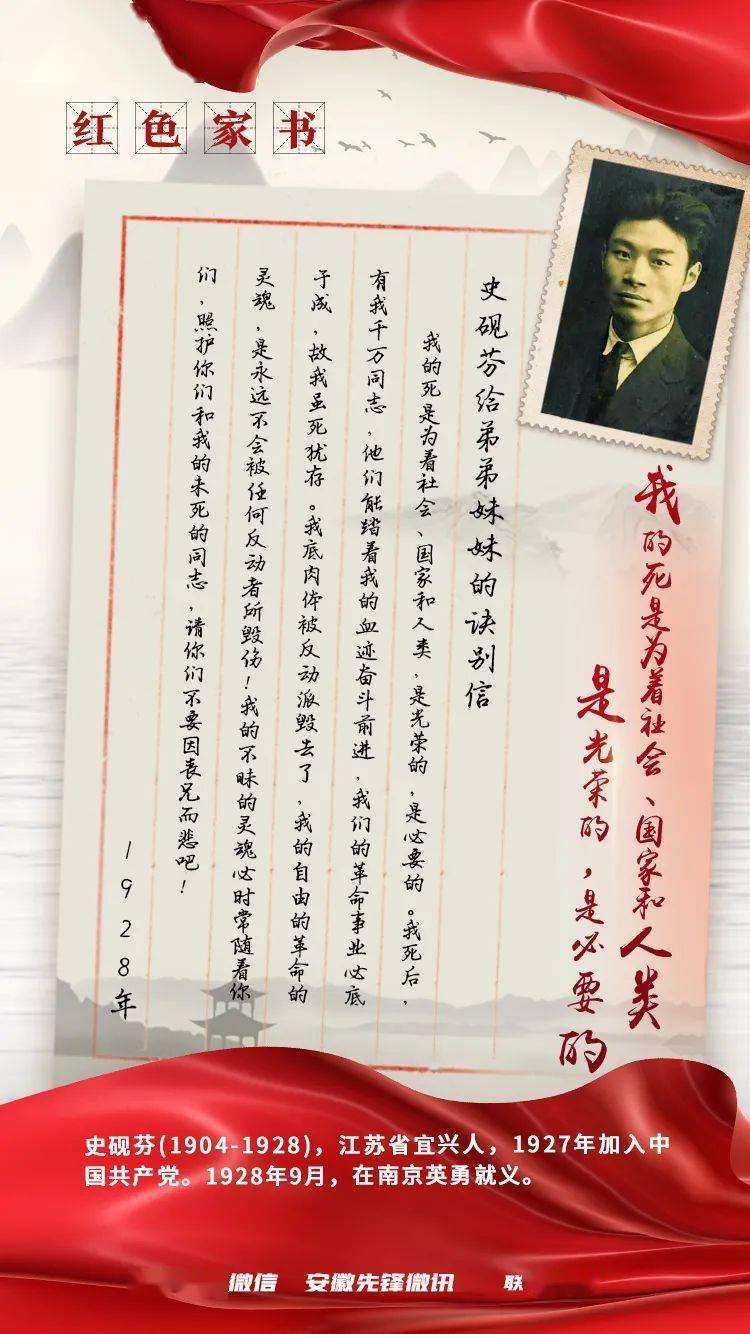 红色家书
史砚芬给弟弟妹妹的诀别信
我的死是为着社会、国家和人类，是光荣的，是必要的。我死后，
有我千万同志，他们能踏着我的血迹奋斗前进，我们的革命事业必底
于成，故我虽死犹存。我底肉体被反动派毁去了，我的自由的革命的
灵魂，是永远不会被任何反动者所毁伤！我的不昧的灵魂必时常随着你
们，照护你们和我的未死的同志，请你们不要因丧兄而悲吧！
1928年
我的死是为着社会、国家和人类
是光荣的，是必要的
史砚芬(1904-1928)，江苏省宜兴人，1927年加入中
国共产党。1928年9月，在南京英勇就义。
微信 安徽先锋微讯 联